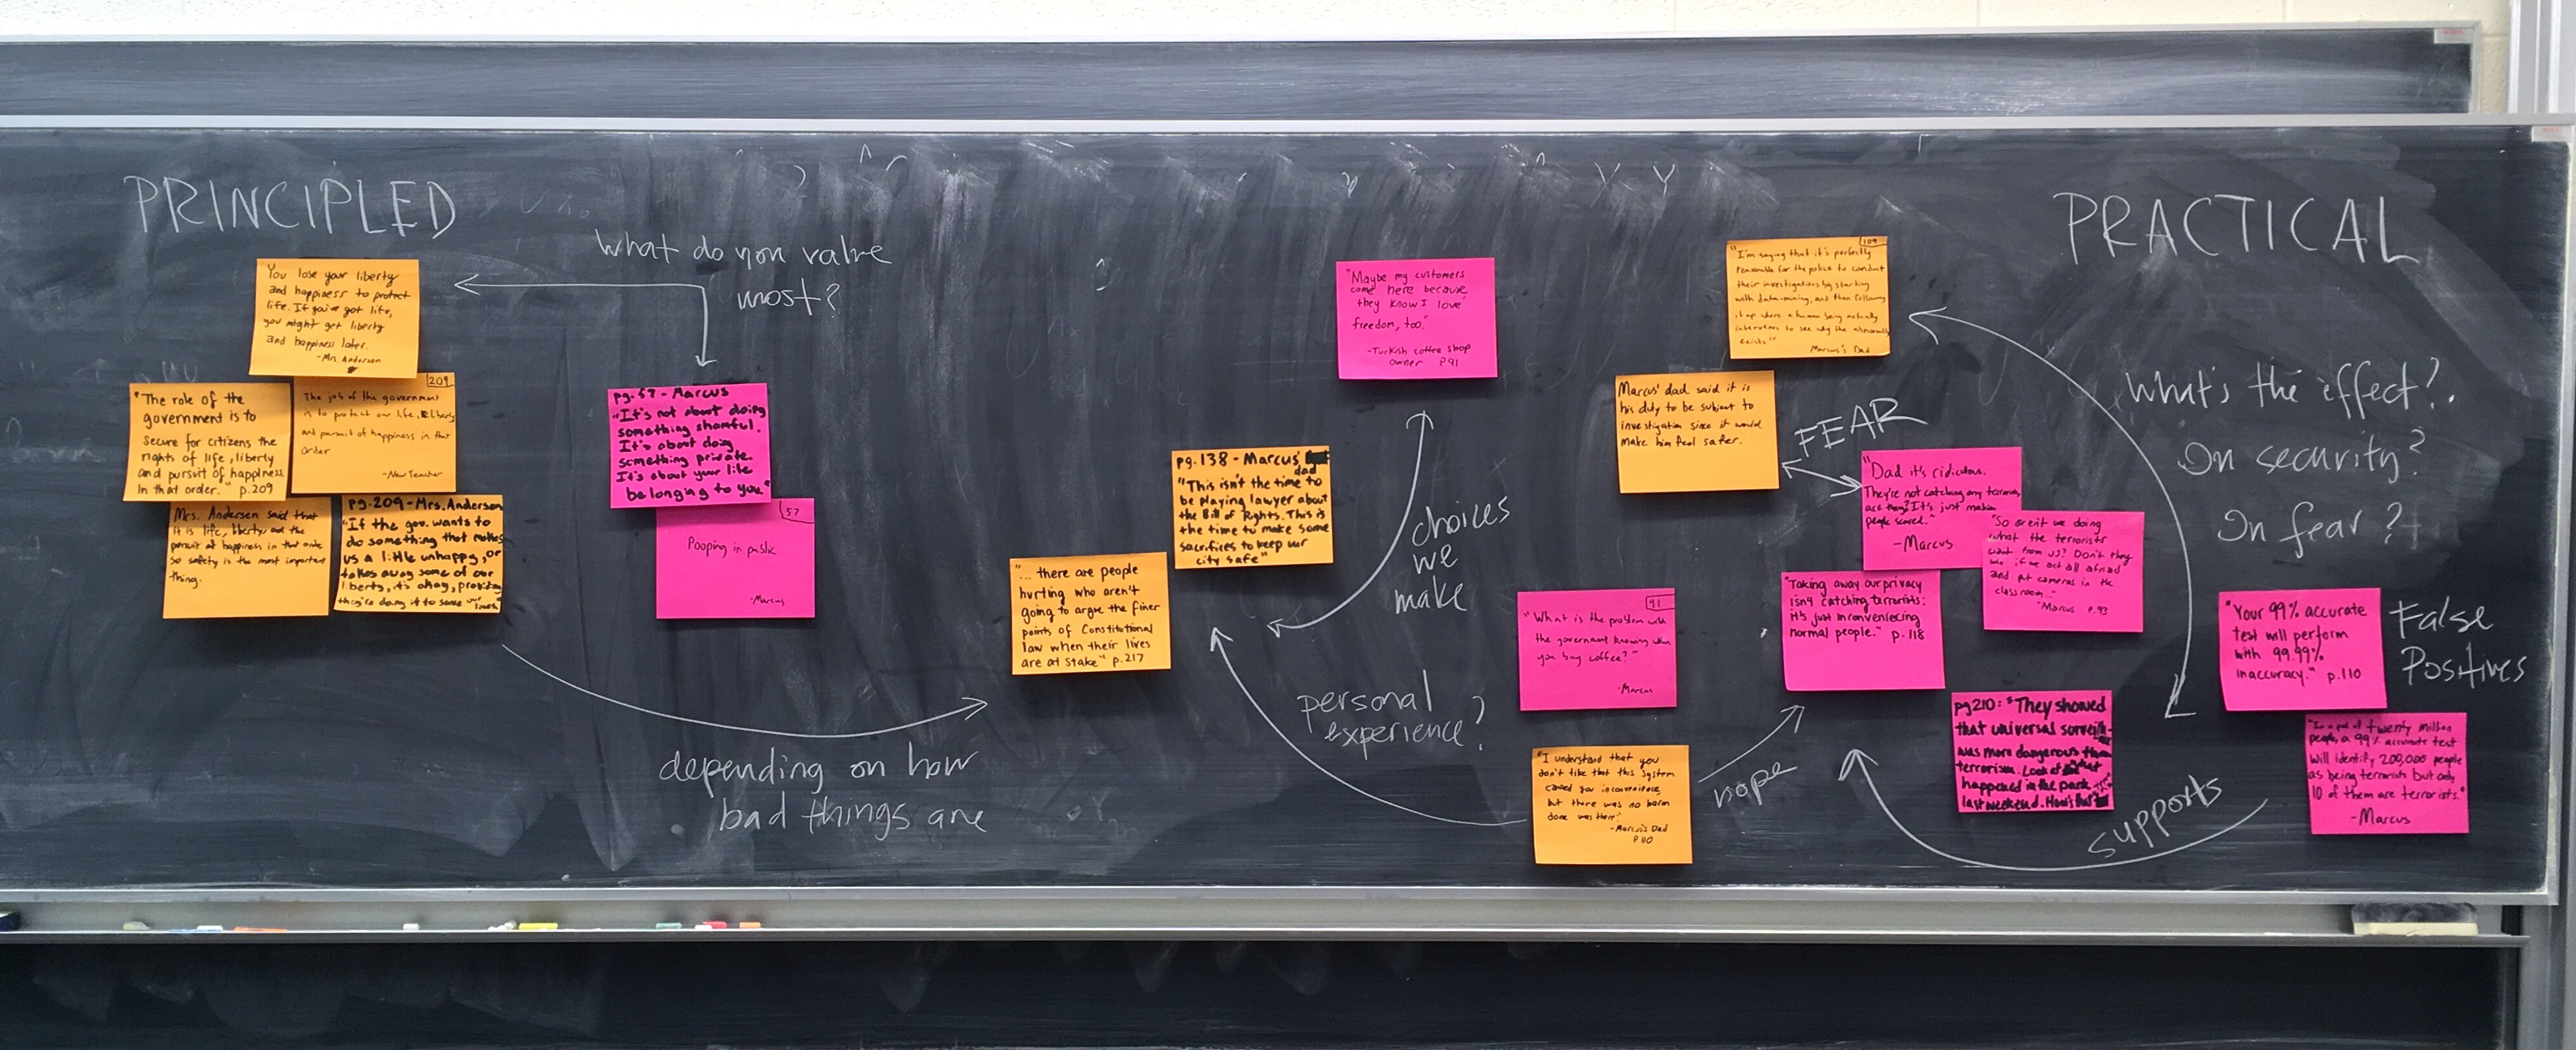 PRINCIPLED
You lose your liberty
and happiness to protect
life. If you've got life,
you might get liberty
and happiness later.
-Mrs Anderson
"The role of the
government is to
secure for citizens the
rights of life, liberty
and pursuit of happiness
in that order." p.209
209
The job of the government
is to protect our life, liberty
and pursuit of happiness in that
order
-New Teacher
Mrs. Andersen said that
it is life, liberty and the
pursuit of happiness in that order
so safety is the most important
thing.
pg.209-Mrs.Anderson
"If the gov. wants to
do something that makes
us a little unhappy, or
takes away some of our
liberty, it's okay, providing
they're doing it to save our lives"
What do you value
most?
pg.57-Marcus
"It's not about doing
something shameful.
It's about doing
something private.
It's about your life
belonging to you."
57
Pooping in public
-Marcus
depending on how
bad things are
"... there are people
hurting who aren't
going to argue the finer
points of Constitutional
law when their lives
are at stake" p.217
pg.138-Marcus'
dad
"This isn't the time to
be playing lawyer about
the Bill of Rights. This is
the time to make some
sacrifices to keep our
city safe"
"Maybe my customers
come here because
they know I love
freedom, too."
-Turkish coffee shop
owner P91
choices
we
make
personal
experience?
91
"What is the problem with
the government knowing when
you buy coffee?"
-Marcus
"I understand that you
don't like that this system
caused you inconvenience,
but there was no harm
done was there."
-Marcus's Dad
P110
nope
109
"I'm saying that it's perfectly
reasonable for the police to conduct
their investigations by starting
with data-mining, and then following
it up where a human being actually
intervenes to see why the abnormality
exists"
Marcus's Dad
Marcus' dad said it is
his duty to be subject to
investigation since it would
make him feel safer.
FEAR
"Dad it's ridiculous.
They're not catching any terrorists,
are they? It's just making
people scared."
-Marcus
"So aren't we doing
what the terrorists
want from us? Don't they
win if we act all afraid
and put cameras in the
classroom..."
-Marcus p.93
"Taking away our privacy
isn't catching terrorists:
it's just inconveniencing
normal people." p.118
pg210: "They showed
that universal
was more dangerous than
terrorism. Look at what
happened in the park
last weekend.
supports
PRACTICAL
What's the effect?
On security?
On fear?
"Your 99% accurate
test will perform
with 99.99%
inaccuracy." p.110
False
Positives
"In a pool of twenty million
people, a 99% accurate test
will identify 200,000 people
as being terrorists but only
10 of them are terrorists."
-Marcus